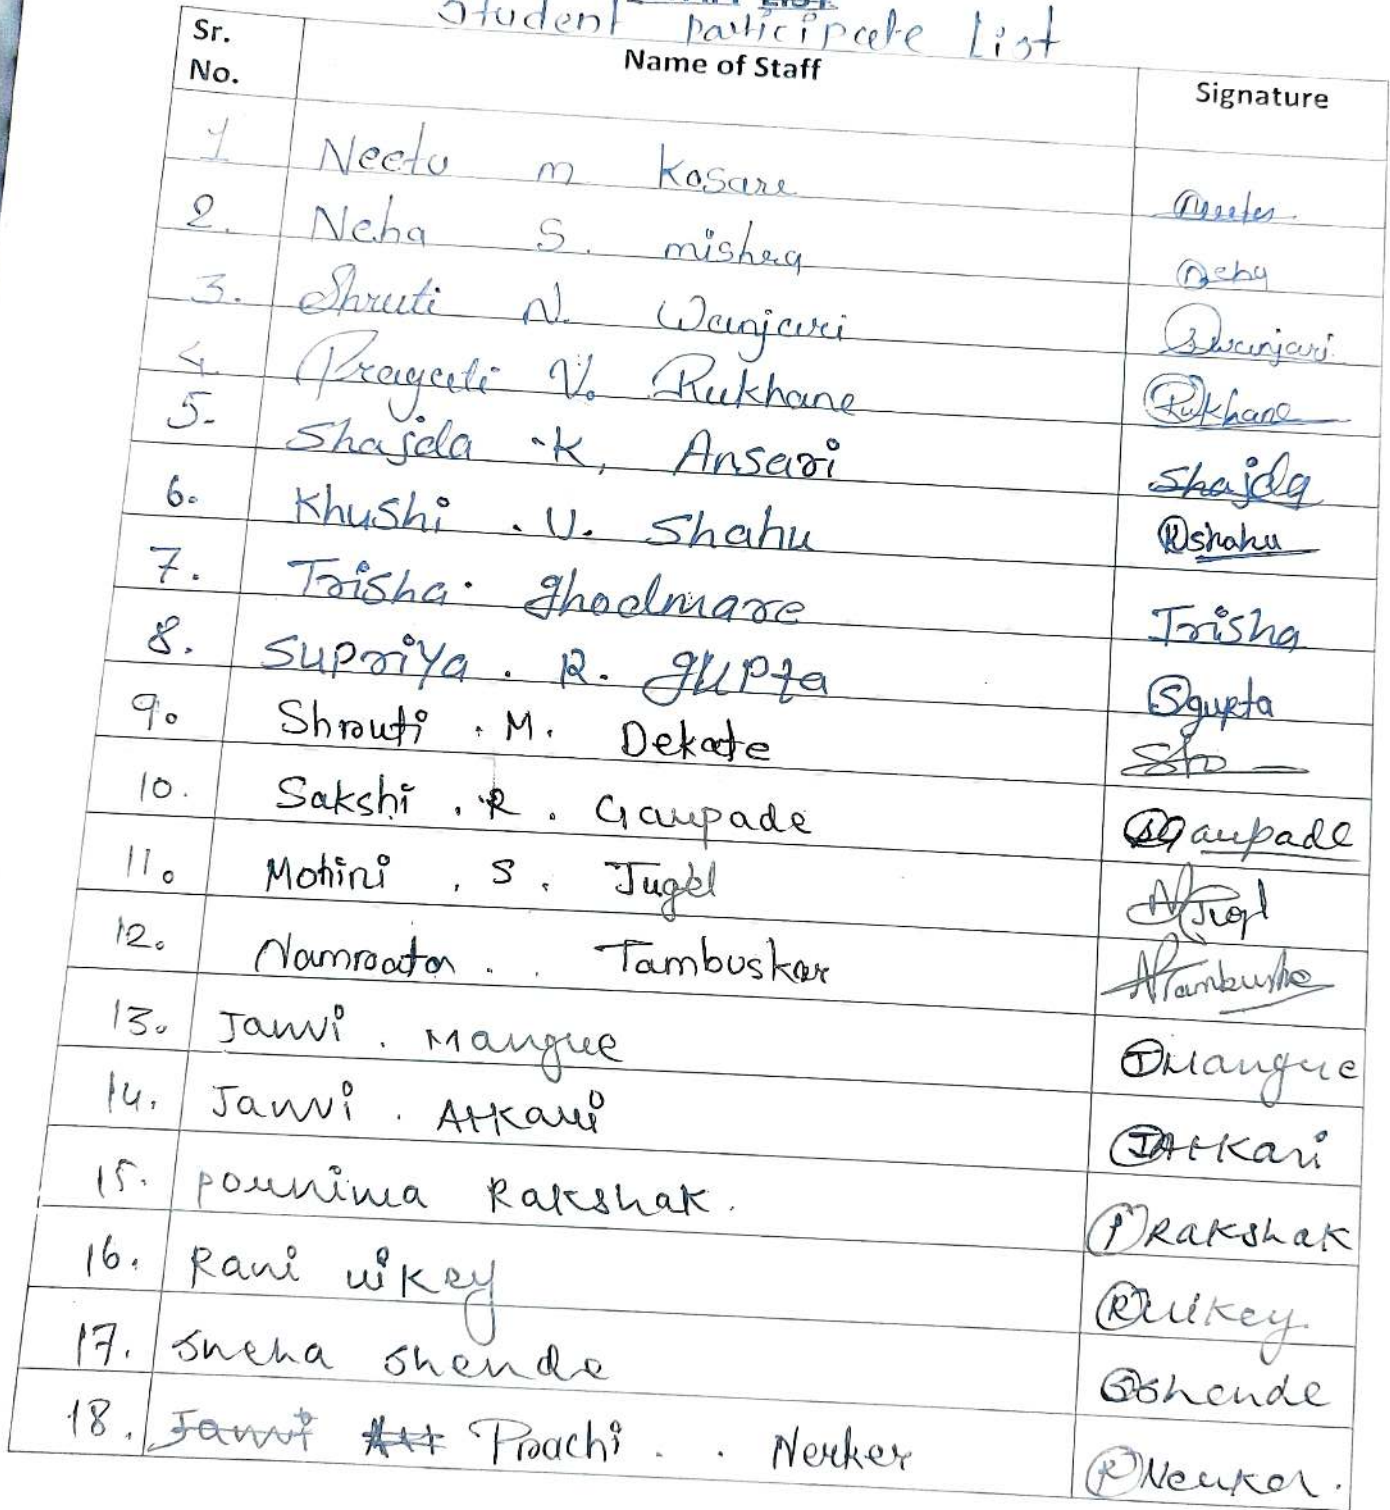 Student participate List
Sr. No. Name of Staff Signature
1 Neetu m Kosare Neetu
2. Neha S. mishra Neha
3. Shruti N. Wanjari SWanjari
4. Pragati V. Rukhane Rukhane
5. Shajda K. Ansari Shajda
6. Khushi . U. Shahu Kshahu
7. Trisha . ghodmare Trisha
8. Supriya . R. gupta Sgupta
9. Shruti . M. Dekate
10. Sakshi . R . Gaupade SGaupade
11. Mohini . S . Jugel
12. Namrata . . Tambuskar NTambuske
13. Janvi . Mangue JMangue
14. Janvi . Atkari JAtkari
15. pournima Rakshak. PRakshak
16. Rani uikey Ruikey.
17. sneha shende Sshende
18. Janvi Prachi . . Nerker PNerker.